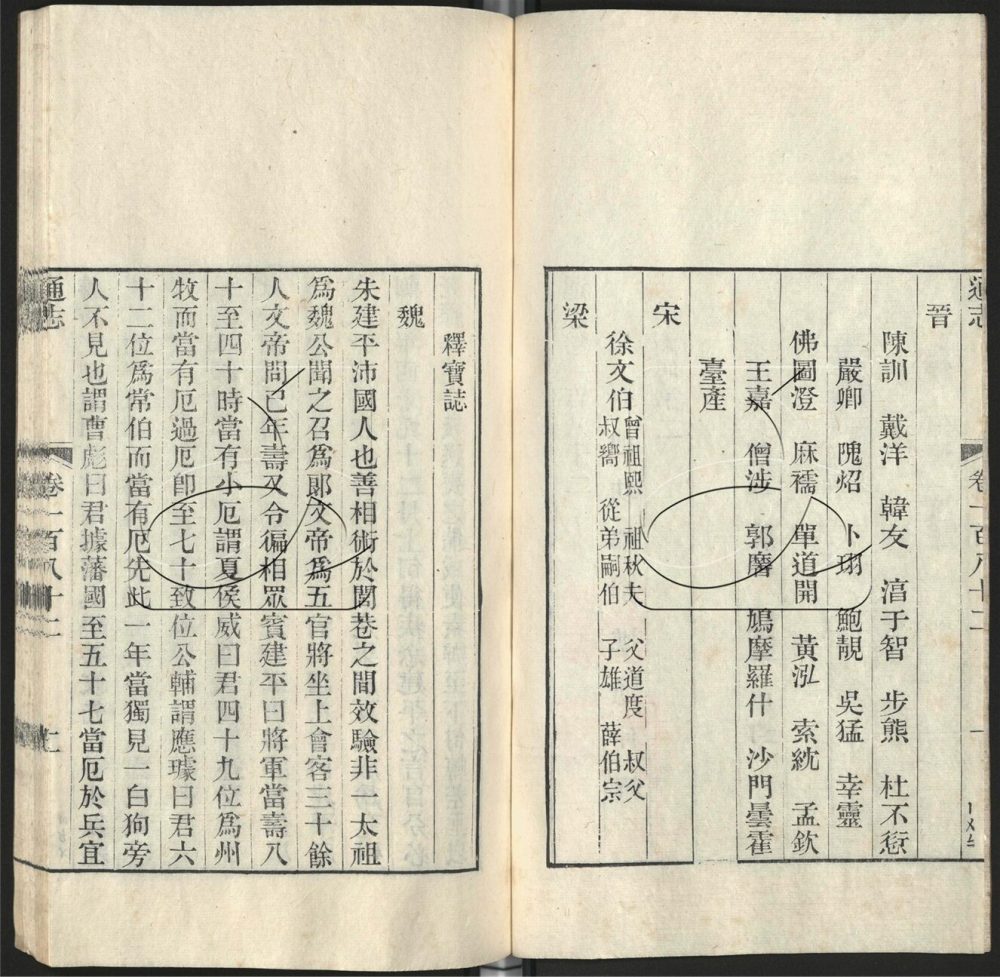 通志
卷一百八十二
一
晉
陳訓 戴洋 韓友 淳于智 步熊 杜不愆
嚴卿 隗炤 卜珝 鮑靚 吳猛 幸靈
佛圖澄 麻襦 單道開 黃泓 索紞 孟欽
王嘉 僧涉 郭黁 鳩摩羅什 沙門曇霍
臺產
宋
徐文伯 曾祖熙 祖秋夫 父道度 叔父
叔嚮 從弟嗣伯 子雄 薛伯宗
梁
釋寶誌
魏
朱建平沛國人也善相術於閭巷之閒效驗非一太祖
爲魏公聞之召爲郞文帝爲五官將坐上會客三十餘
人文帝問己年壽又令徧相眾賓建平曰將軍當壽八
十至四十時當有小厄謂夏侯威曰君四十九位爲州
牧而當有厄過厄卽至七十致位公輔謂應璩曰君六
十二位爲常伯而當有厄先此一年當獨見一白狗旁
人不見也謂曹彪曰君據藩國至五十七當厄於兵宜
通志
卷一百八十二